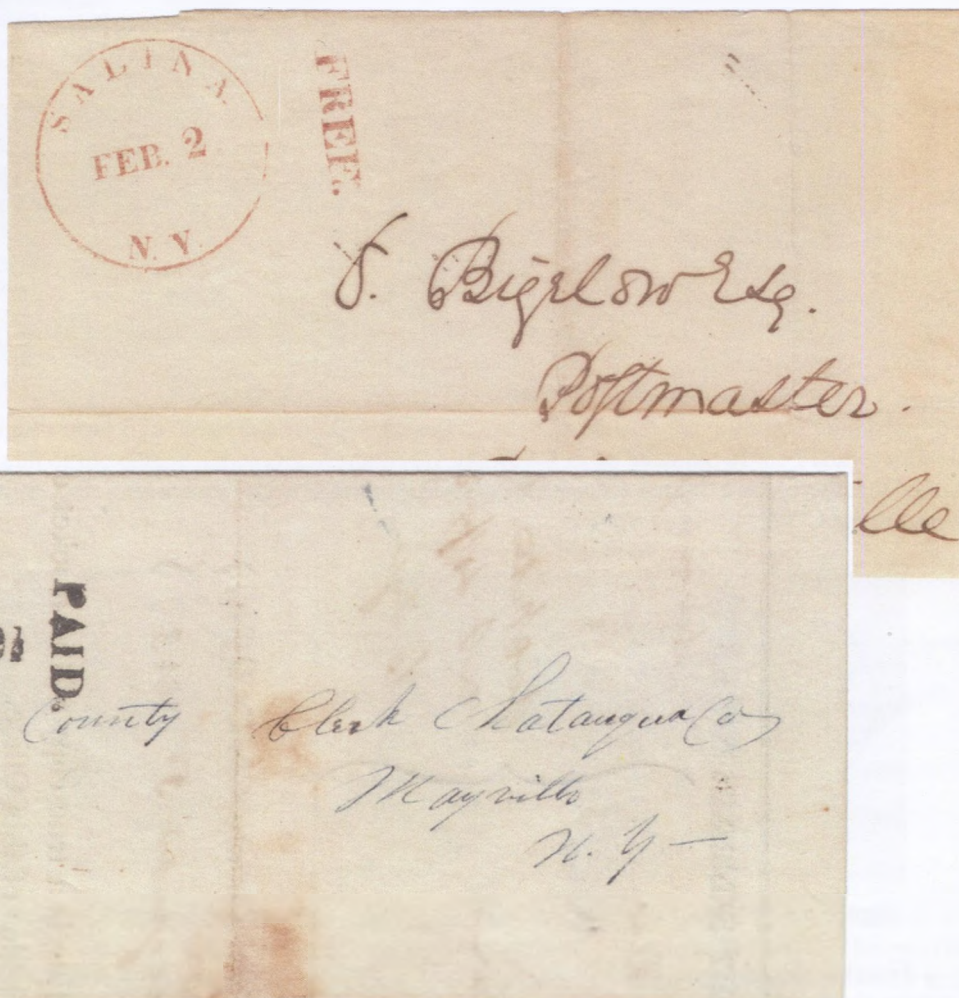 SALINA
FEB. 2
N.Y.
FREE.
S. Bigelow Esq.
Postmaster.
lle
PAID.
County Clerk Chatauqua Co
Mayville
N.Y—